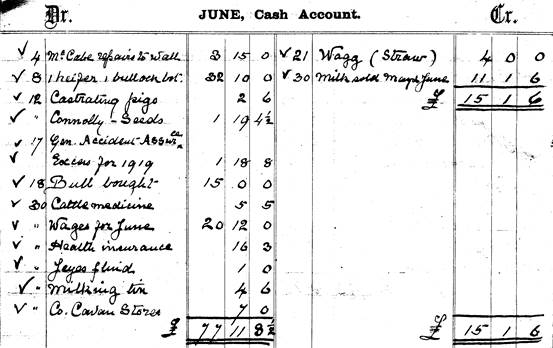 Dr. JUNE, Cash Account. Cr.
✓ 4 McCabe repairs to wall 3 15 0 ✓ 21 Wagg (Straw) 4 0 0
✓ 8 1 heifer 1 bullock bot. 32 10 0 ✓ 30 Milk sold May & June 11 1 6
✓ 12 Castrating pigs 2 6 £ 15 1 6
✓ " Connolly - Seeds 1 19 4½
✓ 17 Gen. Accident Assce
✓ Excess for 1919 1 18 8
✓ 18 Bull bought 15 0 0
✓ 30 Cattle medicine 5 5
✓ " Wages for June 20 12 0
✓ " Health insurance 16 3
✓ " Jeyes fluid 1 0
✓ " Milking tin 4 6
✓ " Co. Cavan Stores 7 0
£ 77 11 8½ £ 15 1 6